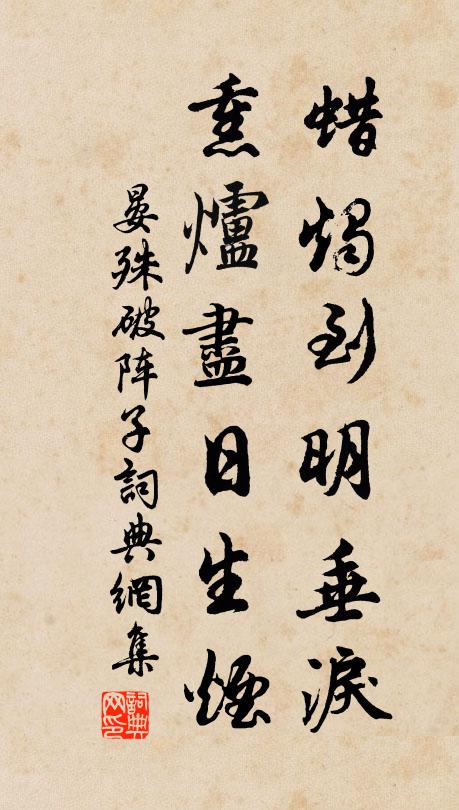 蜡烛到明垂淚
熏爐盡日生煙
晏殊破阵子詞典網集
詞典网印